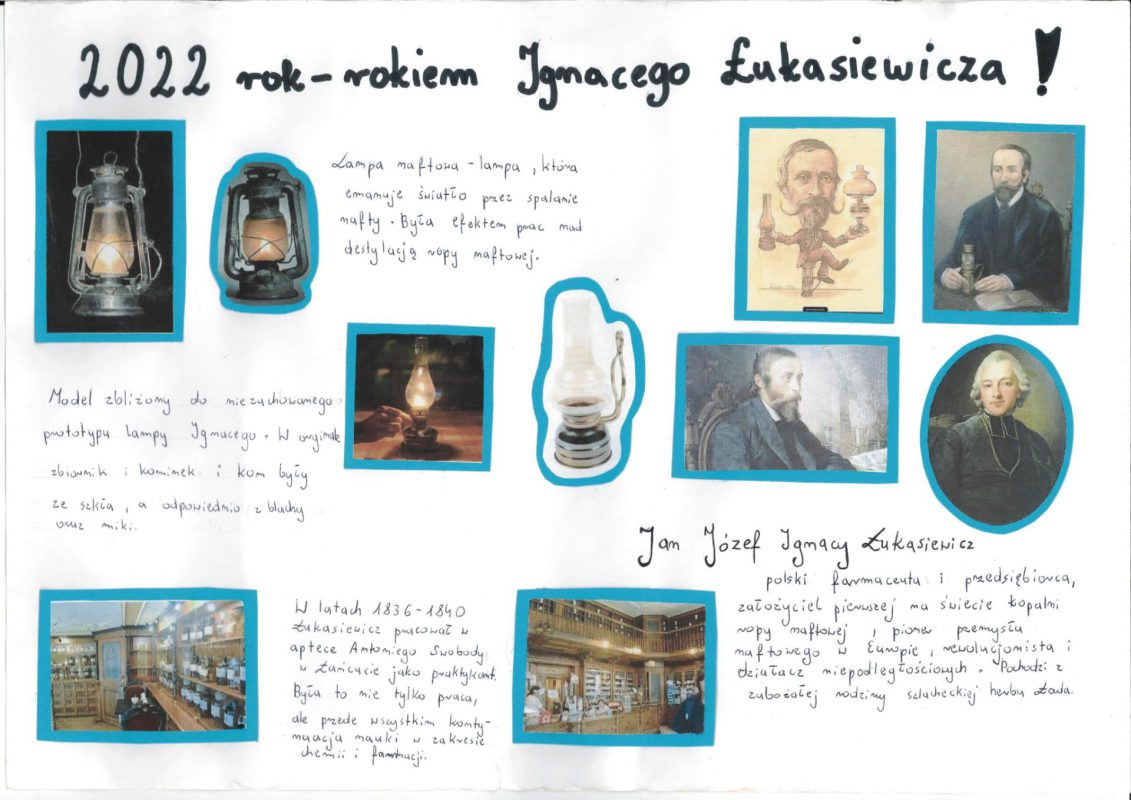 2022 rok-rokiem Ignacego Łukasiewicza!
Lampa naftowa - lampa, która
emanuje światło przez spalanie
nafty. Była efektem prac nad
destylacją ropy naftowej.
Model zbliżony do niezachowanego
prototypu lampy Ignacego. W oryginale
zbiornik i kominek i kom były
ze szkła, a odpowiednio z blachy
oraz miki.
Jan Józef Ignacy Łukasiewicz
polski farmaceuta i przedsiębiorca,
założyciel pierwszej na świecie kopalni
ropy naftowej, pionier przemysłu
naftowego w Europie, rewolucjonista i
działacz niepodległościowych. Pochodzi z
zubożałej rodziny szlacheckiej herbu Łada.
W latach 1836-1840
Łukasiewicz pracował w
aptece Antoniego Swobody
w Łańcucie jako praktykant.
Była to nie tylko praca,
ale przede wszystkim konty-
nuacja nauki w zakresie
chemii i farmacji.